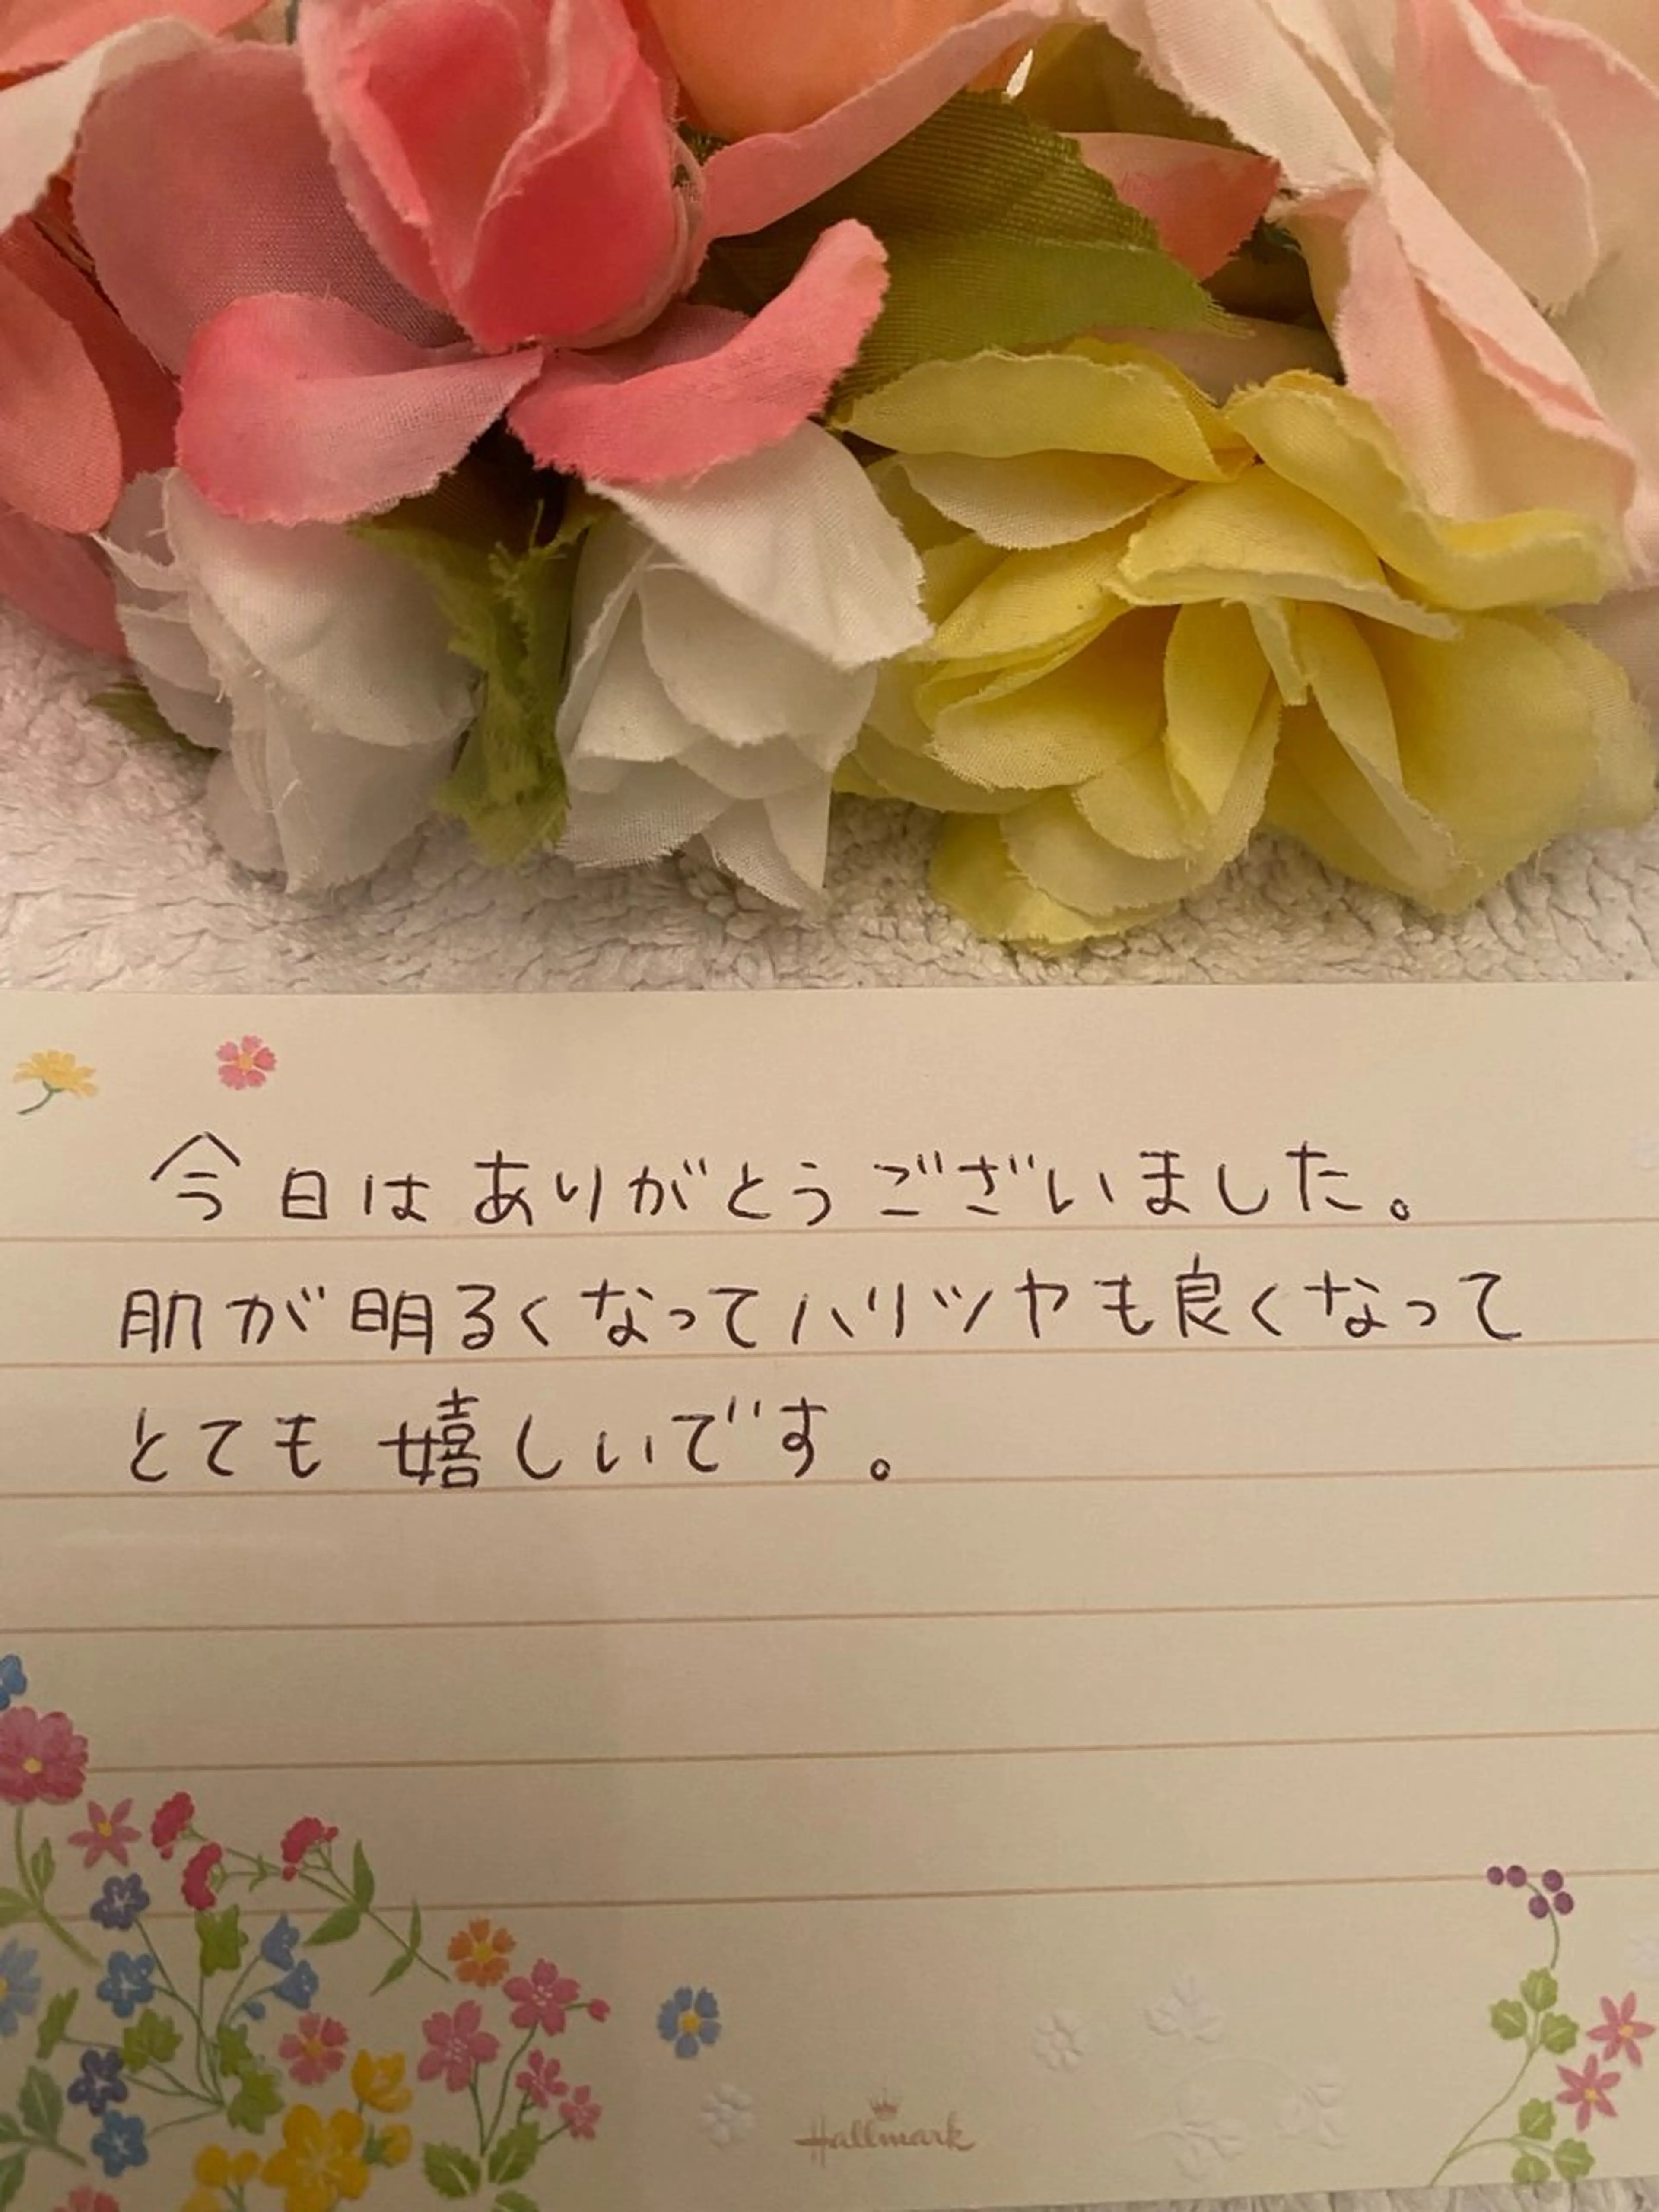 今日はありがとうございました。
肌が明るくなってハリツヤも良くなって
とても嬉しいです。
Hallmark